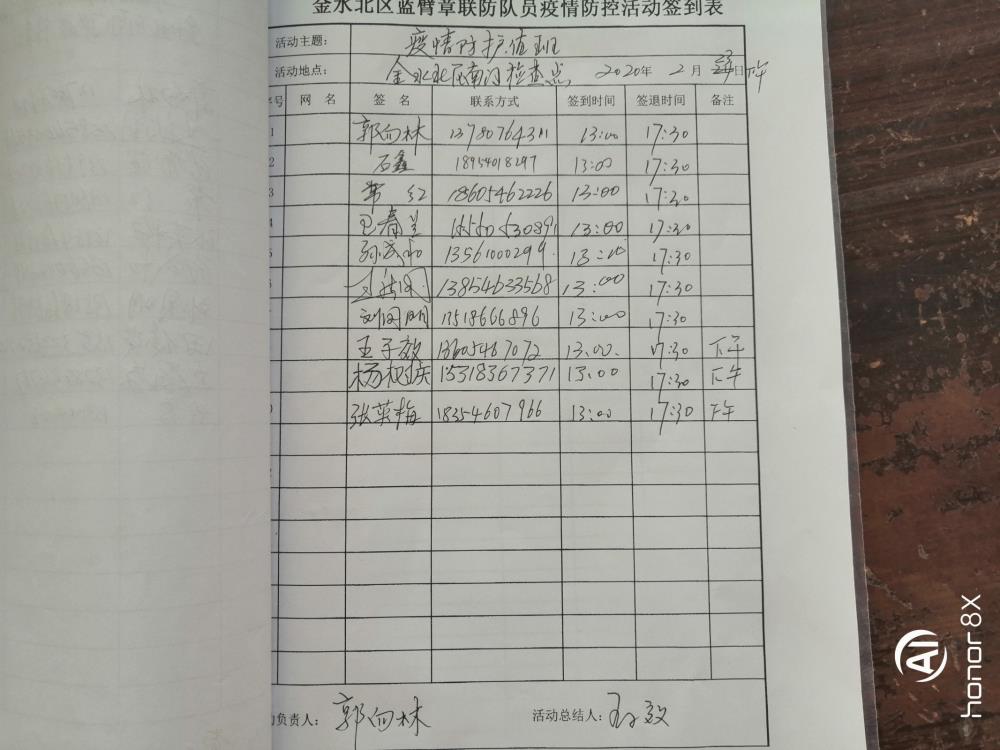 金水北区蓝臂章联防队员疫情防控活动签到表
活动主题： 疫情防护值班
活动地点： 金水北区南门检查点 2020年 2月 23日 下午
序号 网 名 签 名 联系方式 签到时间 签退时间 备注
1 郭向林 13:00 17:30
2 石鑫 18954018297 13:00 17:30
3 常红 18605462226 13:00 17:30
4 巴春兰 13:00 17:30
5 13561000299 13:00 17:30
13854633568 13:00 17:30
刘国明 13518666896 13:00 17:30
王子效 13605467072 13:00 17:30 下午
15318367371 13:00 17:30 下午
张英梅 18354607966 13:00 17:30 下午
负责人： 郭向林 活动总结人： 王子效
AI
honor 8X